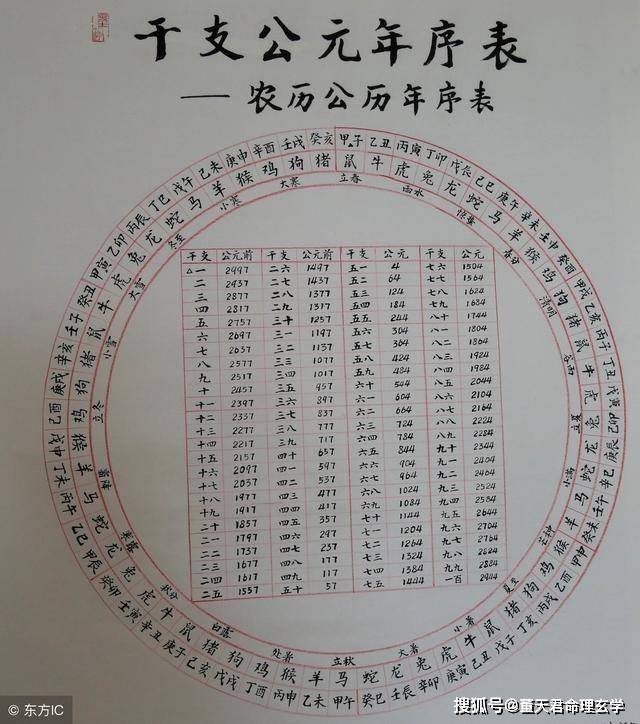 干支公元年序表
— 农历公历年序表
甲子 乙丑 丙寅 丁卯 戊辰 己巳 庚午 辛未 壬申 癸酉 甲戌 乙亥 丙子 丁丑 戊寅 己卯 庚辰 辛巳 壬午 癸未 甲申 乙酉 丙戌 丁亥 戊子 己丑 庚寅 辛卯 壬辰 癸巳 甲午 乙未 丙申 丁酉 戊戌 己亥 庚子 辛丑 壬寅 癸卯 甲辰 乙巳 丙午 丁未 戊申 己酉 庚戌 辛亥 壬子 癸丑 甲寅 乙卯 丙辰 丁巳 戊午 己未 庚申 辛酉 壬戌 癸亥
鼠 牛 虎 兔 龙 蛇 马 羊 猴 鸡 狗 猪 鼠 牛 虎 兔 龙 蛇 马 羊 猴 鸡 狗 猪 鼠 牛 虎 兔 龙 蛇 马 羊 猴 鸡 狗 猪 鼠 牛 虎 兔 龙 蛇 马 羊 猴 鸡 狗 猪 鼠 牛 虎 兔 龙 蛇 马 羊 猴 鸡 狗 猪
立春 雨水 惊蛰 春分 清明 谷雨 立夏 小满 芒种 夏至 小暑 大暑 立秋 处暑 白露 秋分 寒露 霜降 立冬 小雪 大雪 冬至 小寒 大寒
干支 公元前 干支 公元前 干支 公元 干支 公元
△一 2997 二六 1497 五一 4 七六 1504
二 2937 二七 1437 五二 64 七七 1564
三 2877 二八 1377 五三 124 七八 1624
四 2817 二九 1317 五四 184 七九 1684
五 2757 三十 1257 五五 244 八十 1744
六 2697 三一 1197 五六 304 八一 1804
七 2637 三二 1137 五七 364 八二 1864
八 2577 三三 1077 五八 424 八三 1924
九 2517 三四 1017 五九 484 八四 1984
十 2457 三五 957 六十 544 八五 2044
十一 2397 三六 897 六一 604 八六 2104
十二 2337 三七 837 六二 664 八七 2164
十三 2277 三八 777 六三 724 八八 2224
十四 2217 三九 717 六四 784 八九 2284
十五 2157 四十 657 六五 844 九十 2344
十六 2097 四一 597 六六 904 九一 2404
十七 2037 四二 537 六七 964 九二 2464
十八 1977 四三 477 六八 1024 九三 2524
十九 1917 四四 417 六九 1084 九四 2584
二十 1857 四五 357 七十 1144 九五 2644
二一 1797 四六 297 七一 1204 九六 2704
二二 1737 四七 237 七二 1264 九七 2764
二三 1677 四八 177 七三 1324 九八 2824
二四 1617 四九 117 七四 1384 九九 2884
二五 1557 五十 57 七五 1444 一百 2944
东方IC
搜狐号@董天君命理玄学